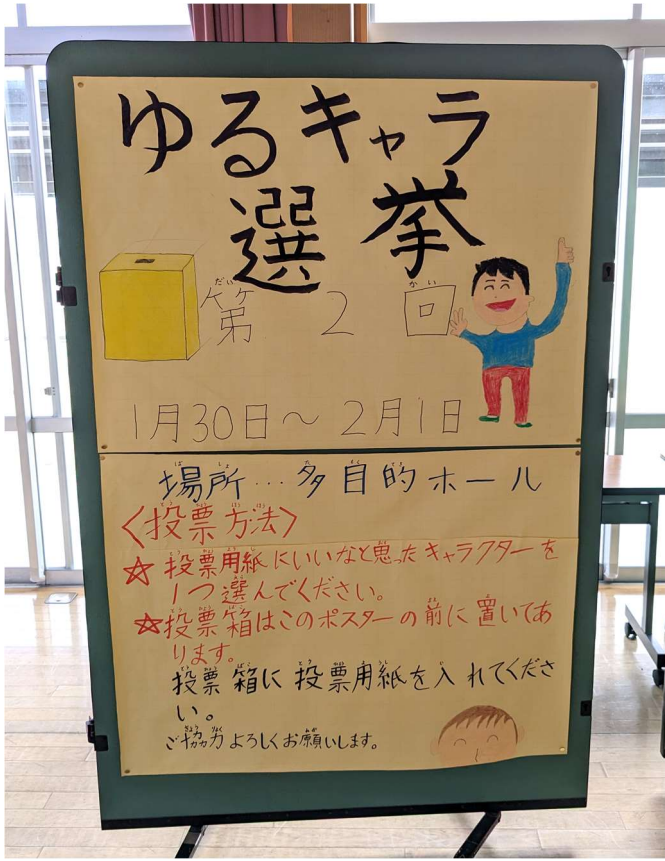 ゆるキャラ
選挙
第2回
1月30日～2月1日
場所…多目的ホール
〈投票方法〉
☆投票用紙にいいなと思ったキャラクターを
1つ選んでください。
☆投票箱はこのポスターの前に置いてあ
ります。
投票箱に投票用紙を入れてくださ
い。
ご協力よろしくお願いします。